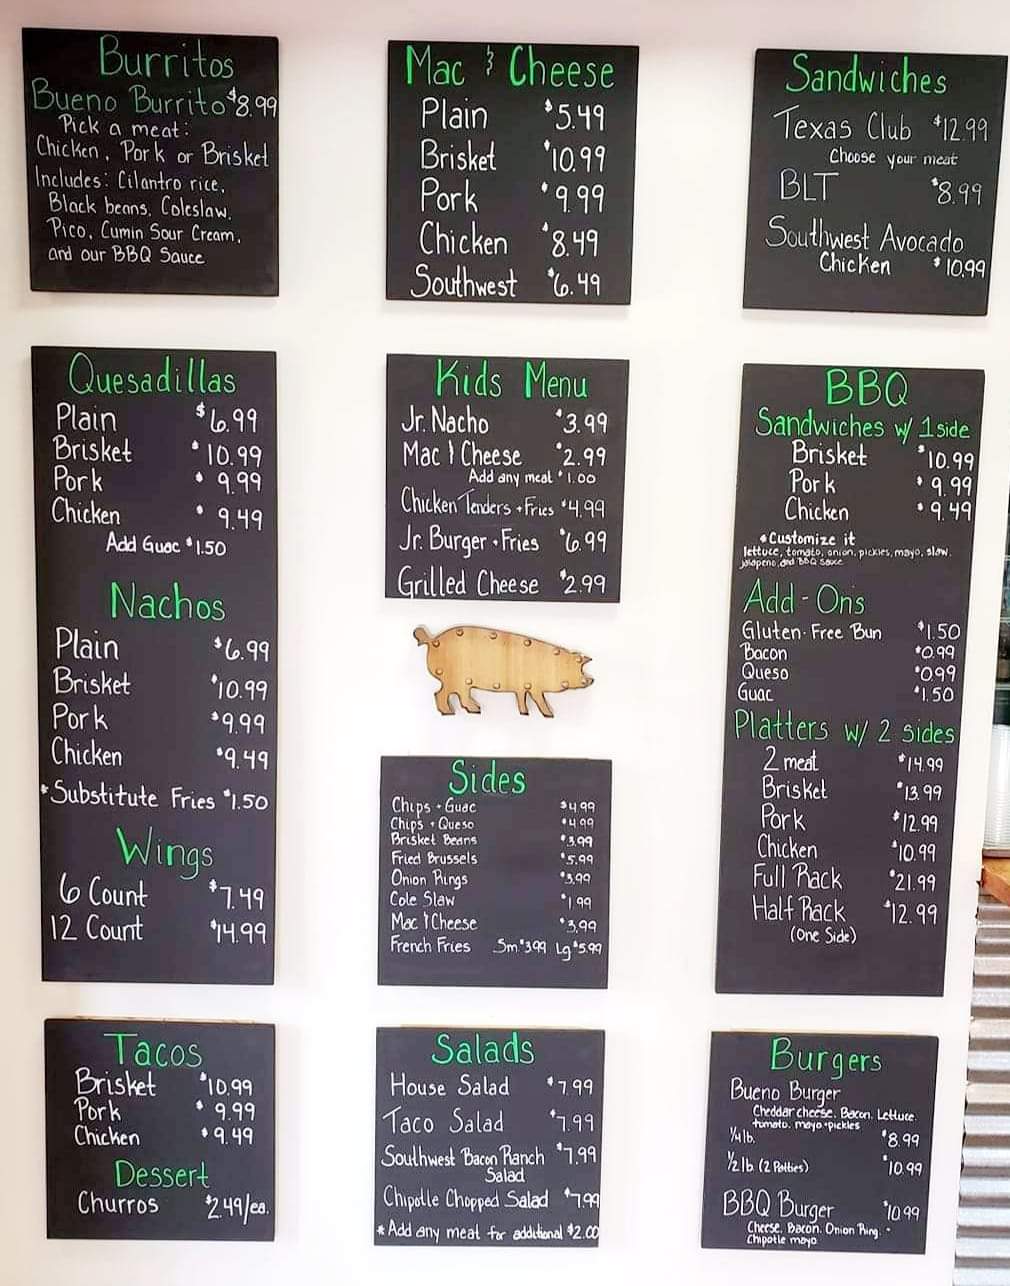 Burritos
Bueno Burrito $8.99
Pick a meat:
Chicken, Pork or Brisket
Includes: Cilantro rice,
Black beans, Coleslaw,
Pico, Cumin Sour Cream,
and our BBQ Sauce
Mac & Cheese
Plain $5.49
Brisket $10.99
Pork $9.99
Chicken $8.49
Southwest $6.49
Sandwiches
Texas Club $12.99
Choose your meat
BLT $8.99
Southwest Avocado
Chicken $10.99
Quesadillas
Plain $6.99
Brisket $10.99
Pork $9.99
Chicken $9.49
Add Guac $1.50
Nachos
Plain $6.99
Brisket $10.99
Pork $9.99
Chicken $9.49
*Substitute Fries $1.50
Wings
6 Count $7.49
12 Count $14.99
Kids Menu
Jr. Nacho $3.99
Mac & Cheese $2.99
Add any meat $1.00
Chicken Tenders + Fries $4.99
Jr. Burger + Fries $6.99
Grilled Cheese $2.99
BBQ
Sandwiches w/ 1 side
Brisket $10.99
Pork $9.99
Chicken $9.49
*Customize it
lettuce, tomato, onion, pickles, mayo, slaw,
jalapeno, and BBQ sauce
Add-Ons
Gluten-Free Bun $1.50
Bacon $0.99
Queso $099
Guac $1.50
Platters w/ 2 sides
2 meat $14.99
Brisket $13.99
Pork $12.99
Chicken $10.99
Full Rack $21.99
Half Rack $12.99
(One Side)
Sides
Chips + Guac $4.99
Chips + Queso $4.99
Brisket Beans $3.99
Fried Brussels $5.99
Onion Rings $3.99
Cole Slaw $1.99
Mac & Cheese $3.99
French Fries Sm $3.99 Lg $5.99
Tacos
Brisket $10.99
Pork $9.99
Chicken $9.49
Dessert
Churros $2.49/ea.
Salads
House Salad $7.99
Taco Salad $7.99
Southwest Bacon Ranch $7.99
Salad
Chipotle Chopped Salad $7.99
*Add any meat for additional $2.00
Burgers
Bueno Burger
Cheddar cheese, Bacon, Lettuce
tomato, mayo + pickles
1/4 lb. $8.99
1/2 lb (2 Patties) $10.99
BBQ Burger $10.99
Cheese, Bacon, Onion Ring, +
Chipotle mayo